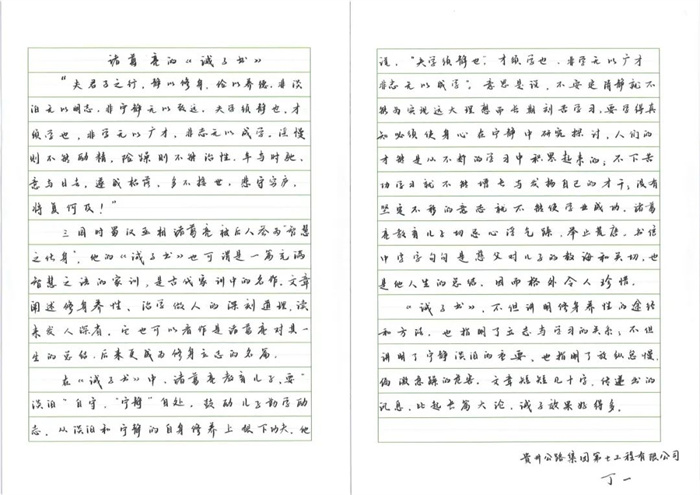 诸葛亮的《诫子书》
“夫君子之行，静以修身，俭以养德，非淡
泊无以明志，非宁静无以致远。夫学须静也，才
须学也，非学无以广才，非志无以成学。淫慢
则不能励精，险躁则不能治性。年与时驰，
意与日去，遂成枯落，多不接世，悲守穷庐，
将复何及！”
三国时蜀汉丞相诸葛亮被后人誉为“智慧
之化身”，他的《诫子书》也可谓是一篇充满
智慧之语的家训，是古代家训中的名作。文章
阐述修身养性、治学做人的深刻道理，读
来发人深省。它也可以看作是诸葛亮对其一
生的总结，后来更成为修身立志的名篇。
在《诫子书》中，诸葛亮教育儿子，要“
淡泊”自守，“宁静”自处，鼓励儿子勤学励
志，从淡泊和宁静的自身修养上狠下功夫。他
说，“夫学须静也，才须学也，非学无以广才
非志无以成学”。意思是说，不安定清静就不
能为实现远大理想而长期刻苦学习，要学得真
知必须使身心在宁静中研究探讨，人们的
才能是从不断的学习中积累起来的；不下苦
功学习就不能增长与发扬自己的才干；没有
坚定不移的意志就不能使学业成功。诸葛
亮教育儿子切忌心浮气躁，举止荒唐。书信
中字字句句是慈父对儿子的教诲和关切，也
是他人生的总结，因而格外令人珍惜。
《诫子书》，不但讲明修身养性的途径
和方法，也指明了立志与学习的关系；不但
讲明了宁静淡泊的重要，也指明了放纵怠慢、
偏激急躁的危害。文章短短几十字，传递出的
讯息，比起长篇大论，诫子效果好得多。
贵州公路集团第七工程有限公司
丁一